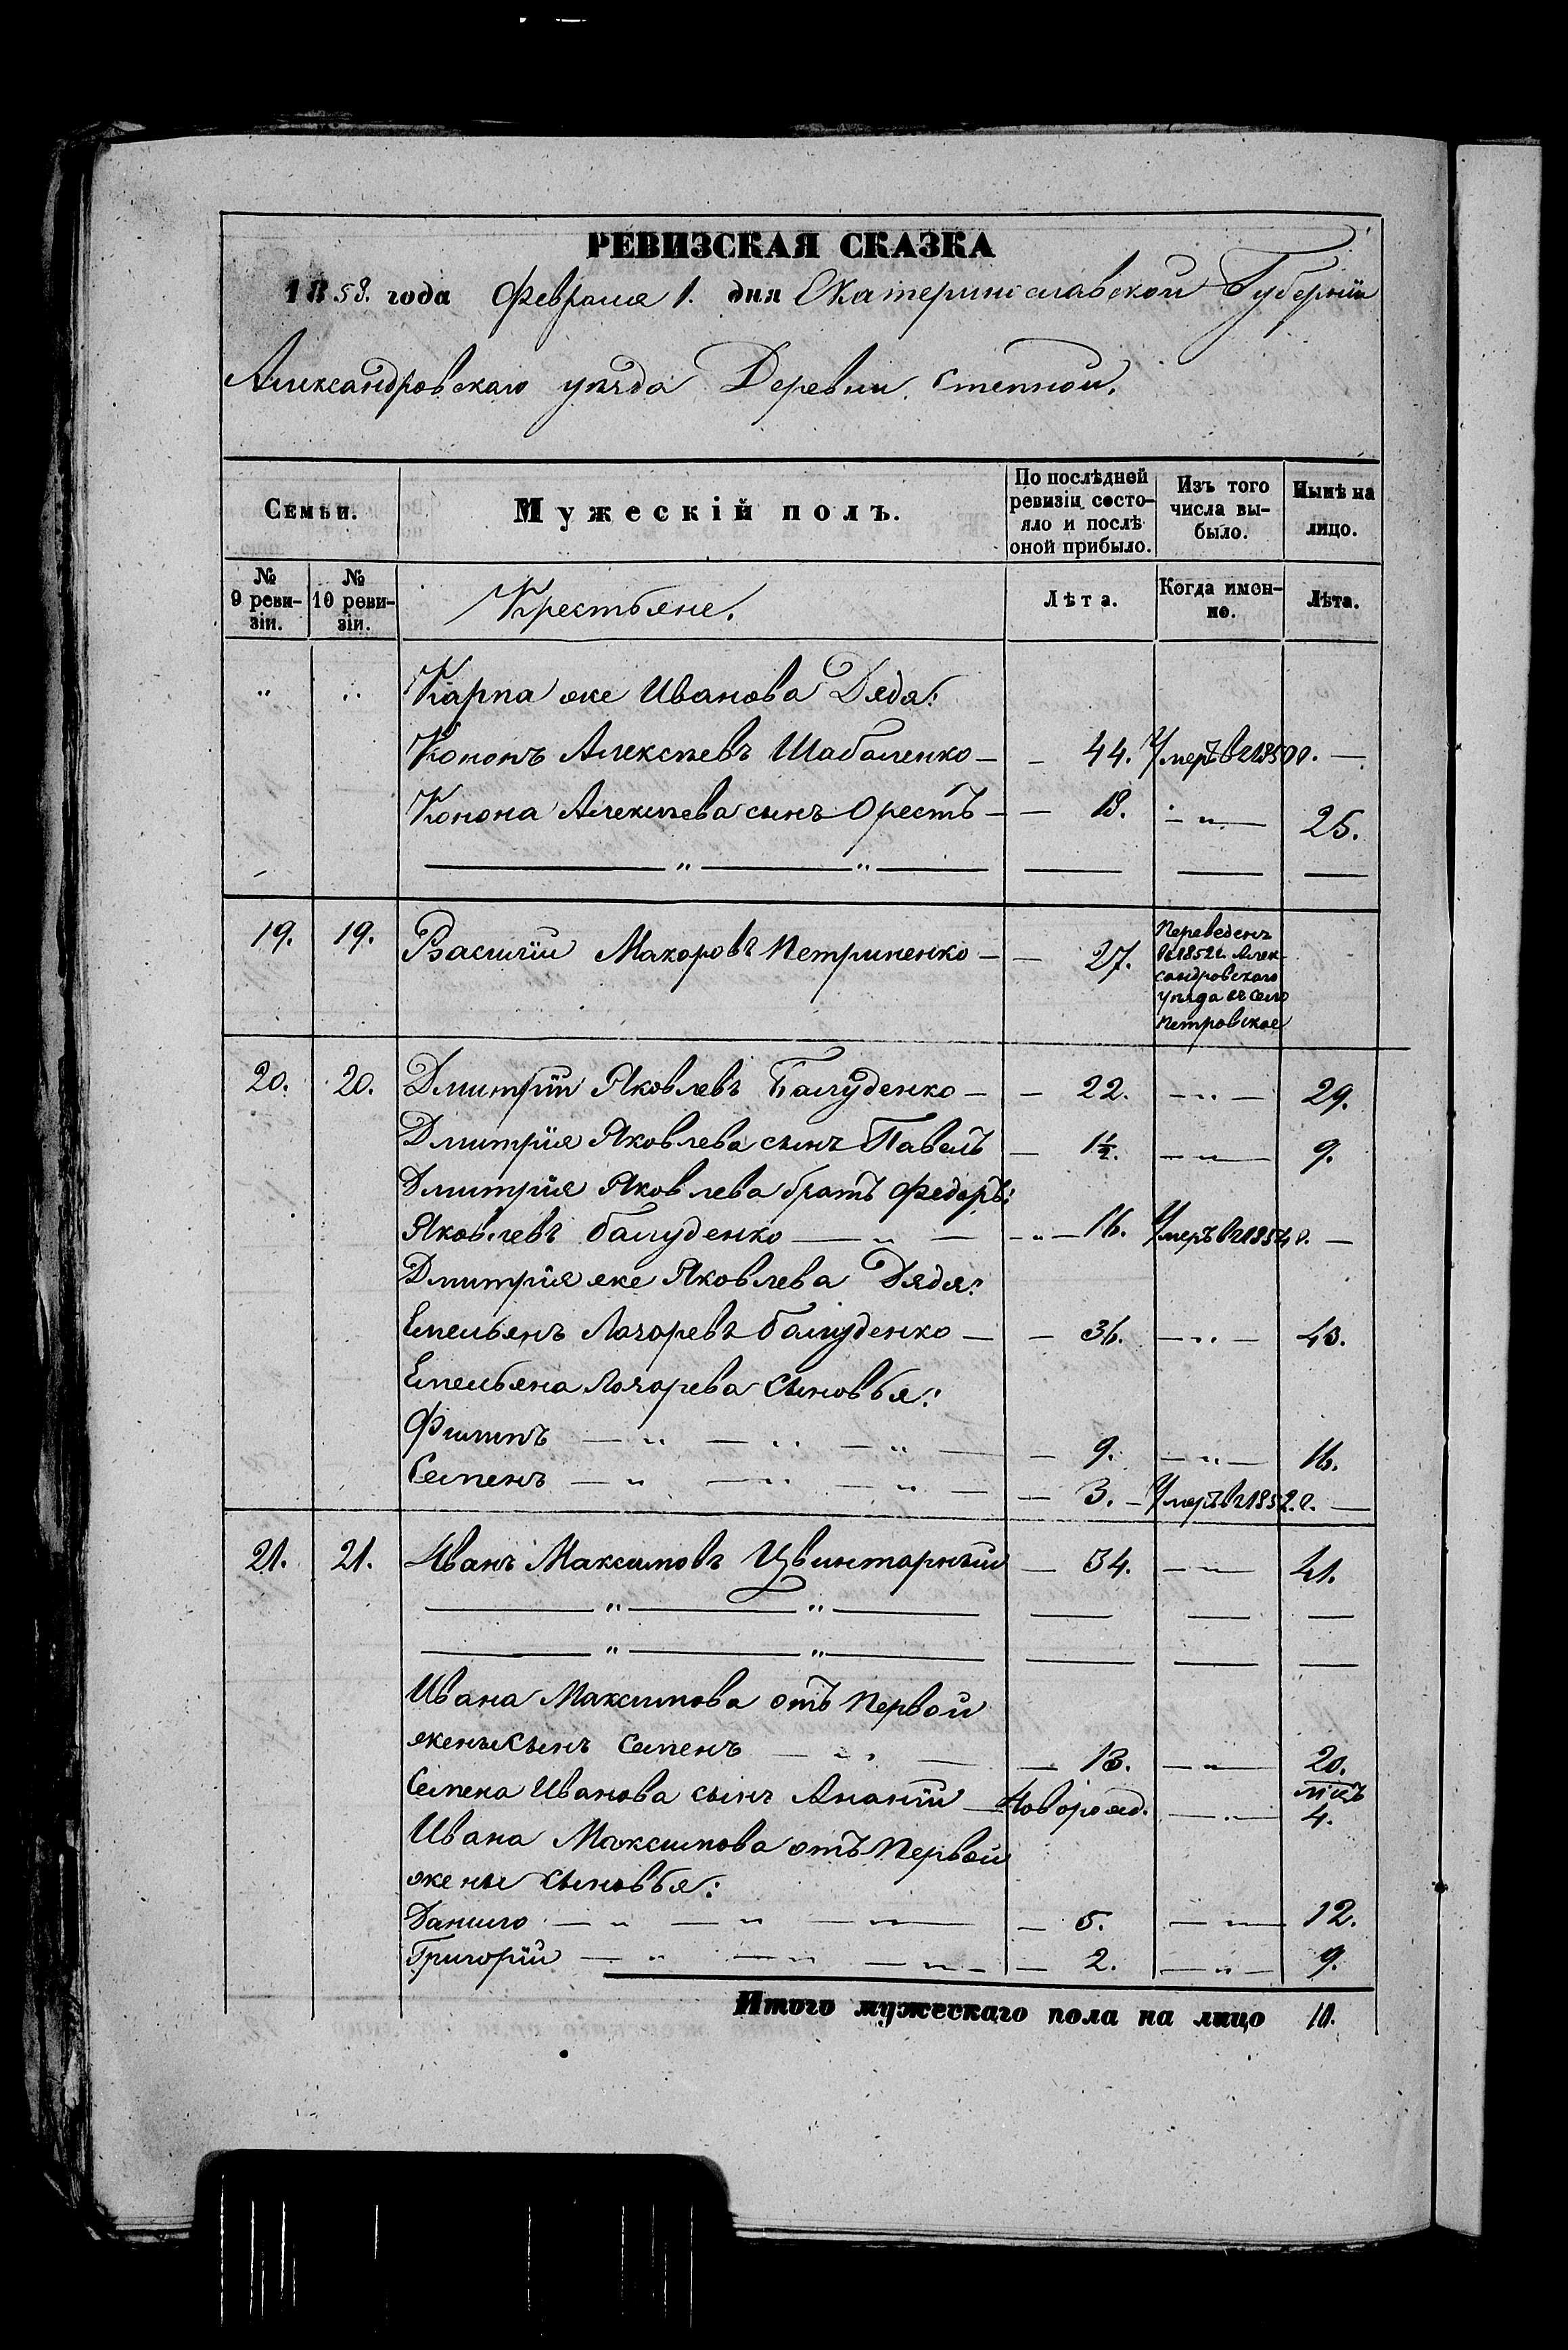 РЕВИЗСКАЯ СКАЗКА
1858. года Февраля 1. дня Екатеринославской Губерніи
Александровскаго уѣзда Деревни Степной.
Семьи. Мужескій полъ. По послѣдней ревизіи состо-яло и послѣ оной прибыло. Изъ того числа вы-было. Нынѣ на лицо.
№ 9 реви-зіи. № 10 реви-зіи. Крестьяне. Лѣта. Когда имен-но. Лѣта.
" " Карпа же Иванова Дядя:
Кононъ Алексѣевъ Шабаленко — — 44. Умеръ въ 1850 г. —
Конона Алексѣева сынъ Орестъ — — 18. — " — 25.
— " — " —
19. 19. Василій Макаровъ Петриненко — — 27. Переведенъ
въ 1852 г. Алек-
сандровскаго
уѣзда въ село
Петровское
20. 20. Дмитрій Яковлевъ Балуденко — — 22. — " — 29.
Дмитрія Яковлева сынъ Павелъ — 1½. — " — 9.
Дмитрія Яковлева братъ Федоръ:
Яковлевъ Балуденко — " — — " — 16. Умеръ въ 1854 г. —
Дмитрія же Яковлева Дядя:
Емельянъ Лазаревъ Балуденко — — 36. — " — 43.
Емельяна Лазарева сыновья:
Филипъ — " — " — " — — 9. — " — 16.
Семенъ — " — " — " — — 3. — Умеръ въ 1852. г. —
21. 21. Иванъ Максимовъ Цвинтарный — 34. — " — 41.
— " — " — — — —
— " — " — — — —
Ивана Максимова отъ первой
жены сынъ Семенъ — " — — 13. — " — 20.
Семена Иванова сынъ Ананій — Новорожд. — " — мѣсъ 4.
Ивана Максимова отъ Первой
жены сыновья:
Данило — " — " — " — — 5. — " — 12.
Григорій — " — " — " — — 2. — " — 9.
Итого мужескаго пола на лицо 10.